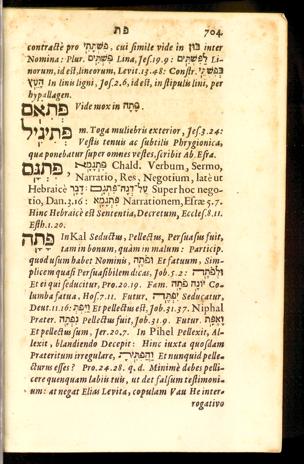 פת 704
contractè pro פִּשְׁתָּתִי, cui simile vide in בון inter
Nomina: Plur. פִּשְׁתִּים Lina, Jes. 19. 9: פִּשְׁתִּים Li-
norum, id est, lineorum, Levit. 13. 48: Constr. בְּפִשְׁתֵּי
הָעֵץ In linis ligni, Jos. 2. 6, id est, in stipulis lini, per
hypallagen.
פִּתְאֹם Vide mox in פָּתָה.
פְּתִיגִיל m. Toga muliebris exterior, Jes. 3. 24:
Vestis tenuis ac subtilis Phrygionica,
quæ ponebatur super omnes vestes, scribit Ab. Esra.
פִּתְגָּם פִּתְגָמָא Chald. Verbum, Sermo,
Narratio, Res, Negotium, latè ut
Hebraicè דָּבָר: עַל־דְּנָה פִּתְגָם Super hoc nego-
tio, Dan. 3. 16: פִּתְגָמָא Narrationem, Esræ 5. 7.
Hinc Hebraicè est Sententia, Decretum, Eccles. 8. 11.
Esth. 1. 20.
פָּתָה in Kal Seductus, Pellectus, Persuasus fuit,
tam in bonum, quàm in malum: Particip.
quod usum habet Nominis, וּפֹתֶה Et fatuum, Sim-
plicem quasi Persuasibilem dicas, Job. 5. 2: וּלְפֹתֶה
Et ei qui seducitur, Pro. 20. 19. Fæm. יוֹנָה פֹתָה Co-
lumba fatua, Hos. 7. 11. Futur. יִפְתֶּה Seducatur,
Deut. 11. 16: וַיִּפְתְּ Et pellectus est, Job. 31. 27. Niphal
Præter. נִפְתָּה Pellectus fuit, Job. 31. 9. Futur. וָאֶפָּת
Et pellectus sum, Jer. 20. 7. In Pihel Pellexit, Al-
lexit, blandiendo Decepit: Hinc juxta quosdam
Præteritum irregulare, וַהֲפִתִּיתָ Et nunquid pelle-
cturus esses? Pro. 24. 28. q. d. Minimè debes pelli-
cere quenquam labiis tuis, ut det falsum testimoni-
um: at negat Elias Levita, copulam Vau He inter-
rogativo